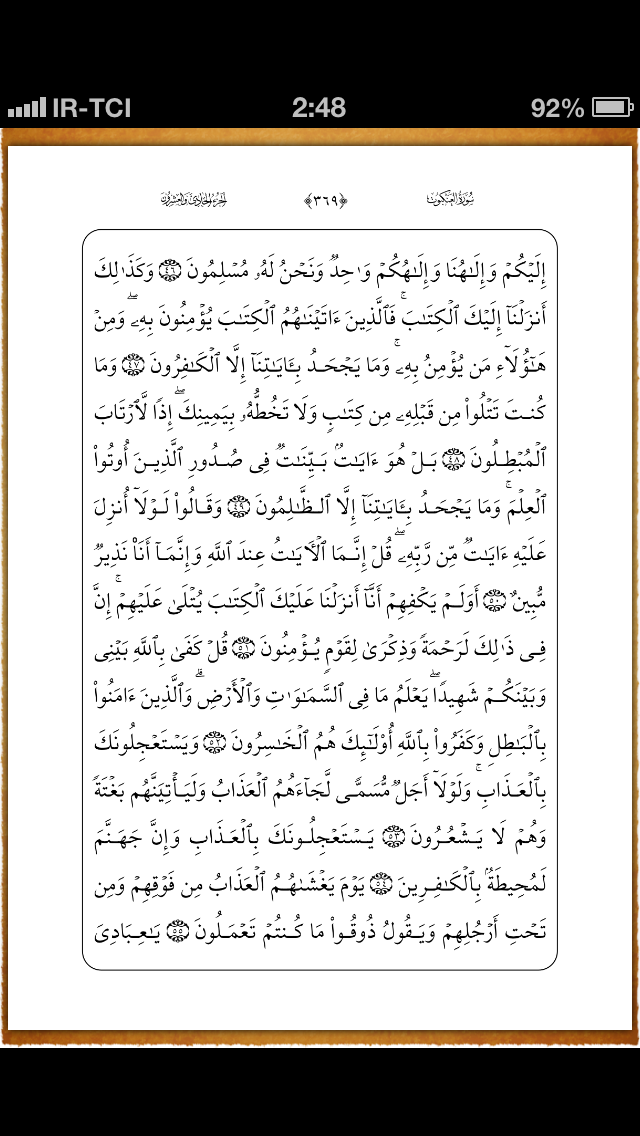 IR-TCI 2:48 92%
سُورَةُ العَنكَبُوتِ ﴿٣٦٩﴾ الجزء الحادي والعشرون
إِلَيْكُمْ وَإِلَٰهُنَا وَإِلَٰهُكُمْ وَٰحِدٌ وَنَحْنُ لَهُۥ مُسْلِمُونَ ٤٦ وَكَذَٰلِكَ
أَنزَلْنَآ إِلَيْكَ ٱلْكِتَٰبَ ۚ فَٱلَّذِينَ ءَاتَيْنَٰهُمُ ٱلْكِتَٰبَ يُؤْمِنُونَ بِهِۦ ۖ وَمِنْ
هَٰٓؤُلَآءِ مَن يُؤْمِنُ بِهِۦ ۚ وَمَا يَجْحَدُ بِـَٔايَٰتِنَآ إِلَّا ٱلْكَٰفِرُونَ ٤٧ وَمَا
كُنتَ تَتْلُوا۟ مِن قَبْلِهِۦ مِن كِتَٰبٍ وَلَا تَخُطُّهُۥ بِيَمِينِكَ ۖ إِذًا لَّٱرْتَابَ
ٱلْمُبْطِلُونَ ٤٨ بَلْ هُوَ ءَايَٰتٌۢ بَيِّنَٰتٌ فِى صُدُورِ ٱلَّذِينَ أُوتُوا۟
ٱلْعِلْمَ ۚ وَمَا يَجْحَدُ بِـَٔايَٰتِنَآ إِلَّا ٱلظَّٰلِمُونَ ٤٩ وَقَالُوا۟ لَوْلَآ أُنزِلَ
عَلَيْهِ ءَايَٰتٌ مِّن رَّبِّهِۦ ۖ قُلْ إِنَّمَا ٱلْءَايَٰتُ عِندَ ٱللَّهِ وَإِنَّمَآ أَنَا۠ نَذِيرٌ
مُّبِينٌ ٥٠ أَوَلَمْ يَكْفِهِمْ أَنَّآ أَنزَلْنَا عَلَيْكَ ٱلْكِتَٰبَ يُتْلَىٰ عَلَيْهِمْ ۚ إِنَّ
فِى ذَٰلِكَ لَرَحْمَةً وَذِكْرَىٰ لِقَوْمٍ يُؤْمِنُونَ ٥١ قُلْ كَفَىٰ بِٱللَّهِ بَيْنِى
وَبَيْنَكُمْ شَهِيدًا ۖ يَعْلَمُ مَا فِى ٱلسَّمَٰوَٰتِ وَٱلْأَرْضِ ۗ وَٱلَّذِينَ ءَامَنُوا۟
بِٱلْبَٰطِلِ وَكَفَرُوا۟ بِٱللَّهِ أُو۟لَٰٓئِكَ هُمُ ٱلْخَٰسِرُونَ ٥٢ وَيَسْتَعْجِلُونَكَ
بِٱلْعَذَابِ ۚ وَلَوْلَآ أَجَلٌ مُّسَمًّى لَّجَآءَهُمُ ٱلْعَذَابُ وَلَيَأْتِيَنَّهُم بَغْتَةً
وَهُمْ لَا يَشْعُرُونَ ٥٣ يَسْتَعْجِلُونَكَ بِٱلْعَذَابِ وَإِنَّ جَهَنَّمَ
لَمُحِيطَةٌۢ بِٱلْكَٰفِرِينَ ٥٤ يَوْمَ يَغْشَىٰهُمُ ٱلْعَذَابُ مِن فَوْقِهِمْ وَمِن
تَحْتِ أَرْجُلِهِمْ وَيَقُولُ ذُوقُوا۟ مَا كُنتُمْ تَعْمَلُونَ ٥٥ يَٰعِبَادِىَ